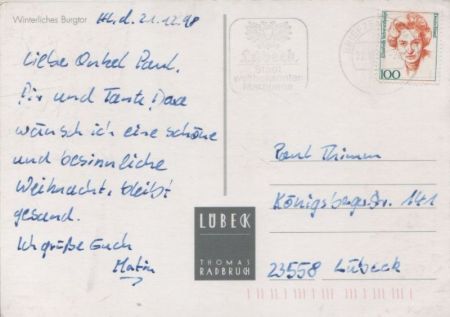 Winterliches Burgtor
d. 21.12.98
Liebe Onkel Paul.
Dir und Tante Dora
wünsch ich eine schöne
und besinnliche
Weihnacht, bleibt
gesund.
Ich grüße Euch
Martin
Lübeck
Stadt
weltbekannter
Marzipane
100
Paul Thimm
Königsbergerstr. 141
23558 Lübeck
LÜBECK
THOMAS
RADBRUCH